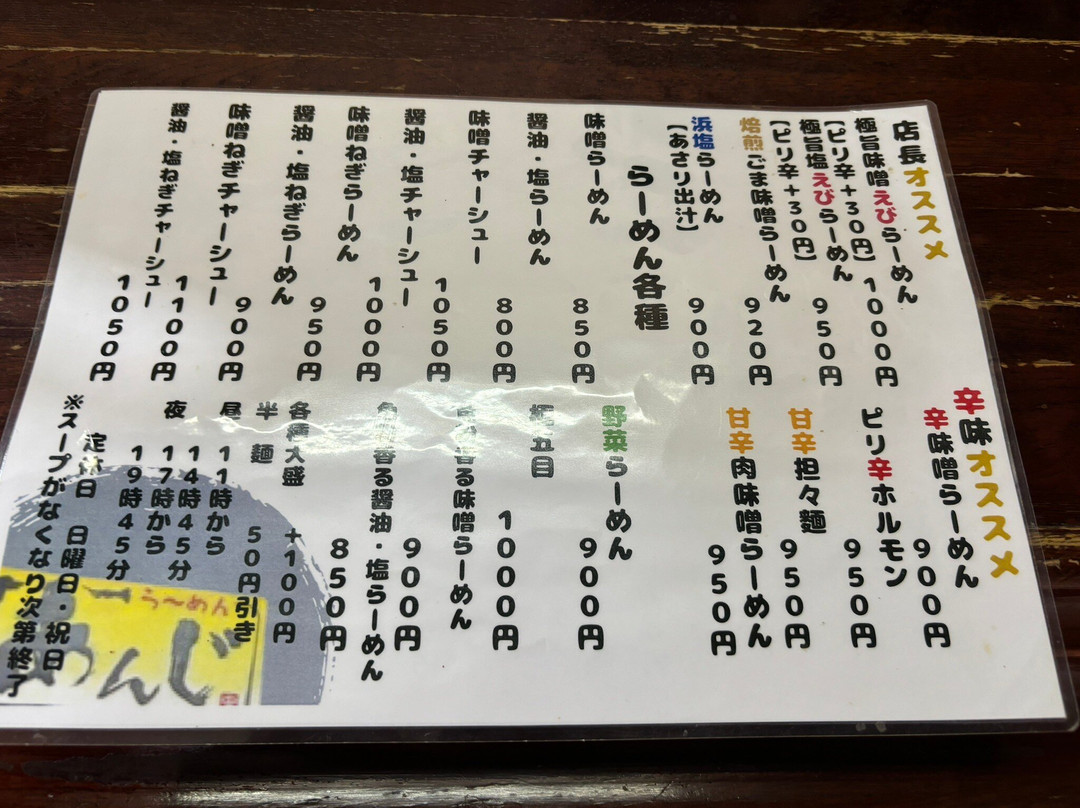 店長オススメ
極旨味噌えびらーめん
1000円
【ピリ辛+30円】
極旨塩えびらーめん
950円
【ピリ辛+30円】
焙煎ごま味噌らーめん
920円
浜塩らーめん
900円
【あさり出汁】
らーめん各種
味噌らーめん
850円
醤油・塩らーめん
800円
味噌チャーシュー
1050円
醤油・塩チャーシュー
1000円
味噌ねぎらーめん
950円
醤油・塩ねぎらーめん
900円
味噌ねぎチャーシュー
1100円
醤油・塩ねぎチャーシュー
1050円
辛味オススメ
辛味噌らーめん
900円
ピリ辛ホルモン
950円
甘辛担々麺
950円
甘辛肉味噌らーめん
950円
野菜らーめん
900円
五目
1000円
香る味噌らーめん
900円
香る醤油・塩らーめん
850円
各種大盛
+100円
半麺
50円引き
昼 11時から
14時45分
夜 17時から
19時45分
定休日 日曜日・祝日
※スープがなくなり次第終了
ら〜めん
めんじ